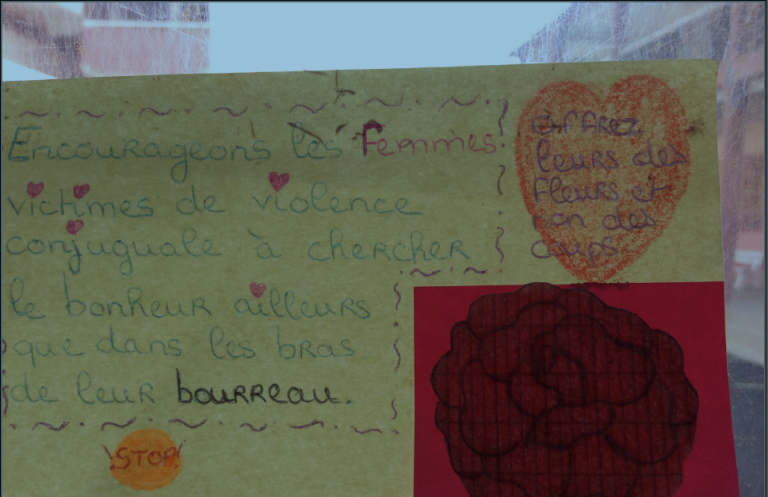 Encourageons les Femmes
victimes de violence
conjuguale à chercher
le bonheur ailleurs
que dans les bras
de leur bourreau.
STOP
leurs des
fleurs et
non des
coups.